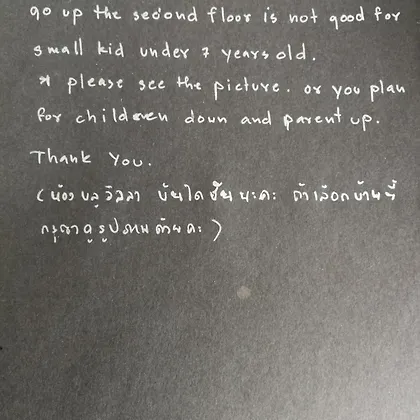 go up the second floor is not good for
small kid under 7 years old.
* please see the picture. or you plan
for children down and parent up.
Thank You.
(ห้องบลูวิลลา บันไดชันนะคะ ถ้าเลือกบ้านนี้
กรุณาดูรูปตามด้วยคะ)